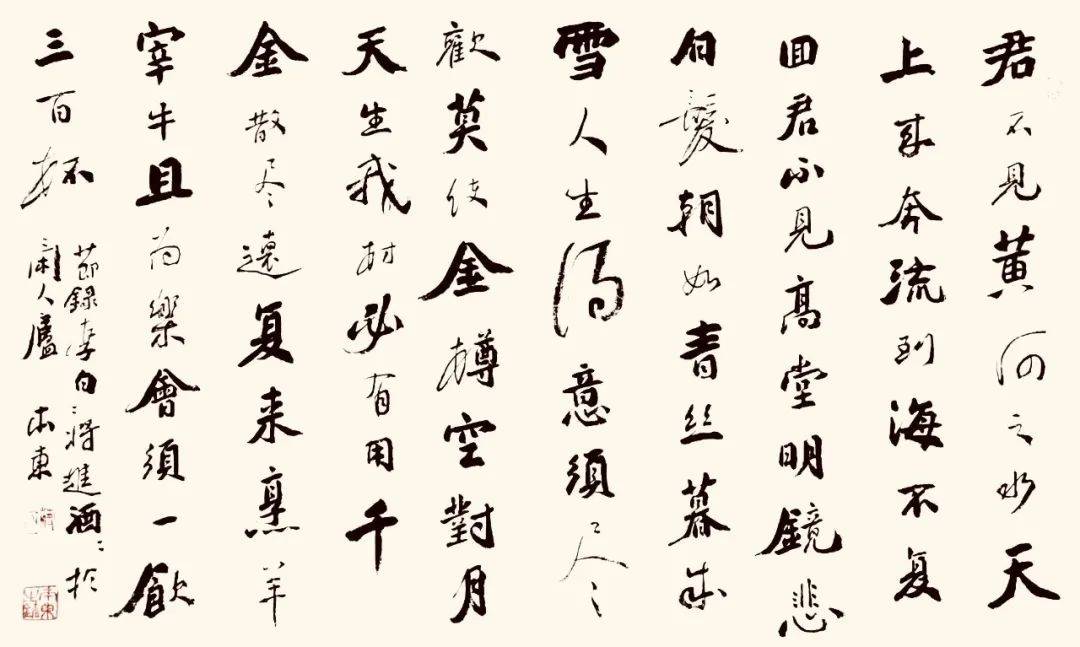 君不見黄河之水天
上来奔流到海不复
回君不見高堂明鏡悲
白髮朝如青丝暮成
雪人生得意須尽
歡莫使金樽空對月
天生我材必有用千
金散尽還复来烹羊
宰牛且为樂會須一飲
三百杯
節録李白將進酒於
人廬 東